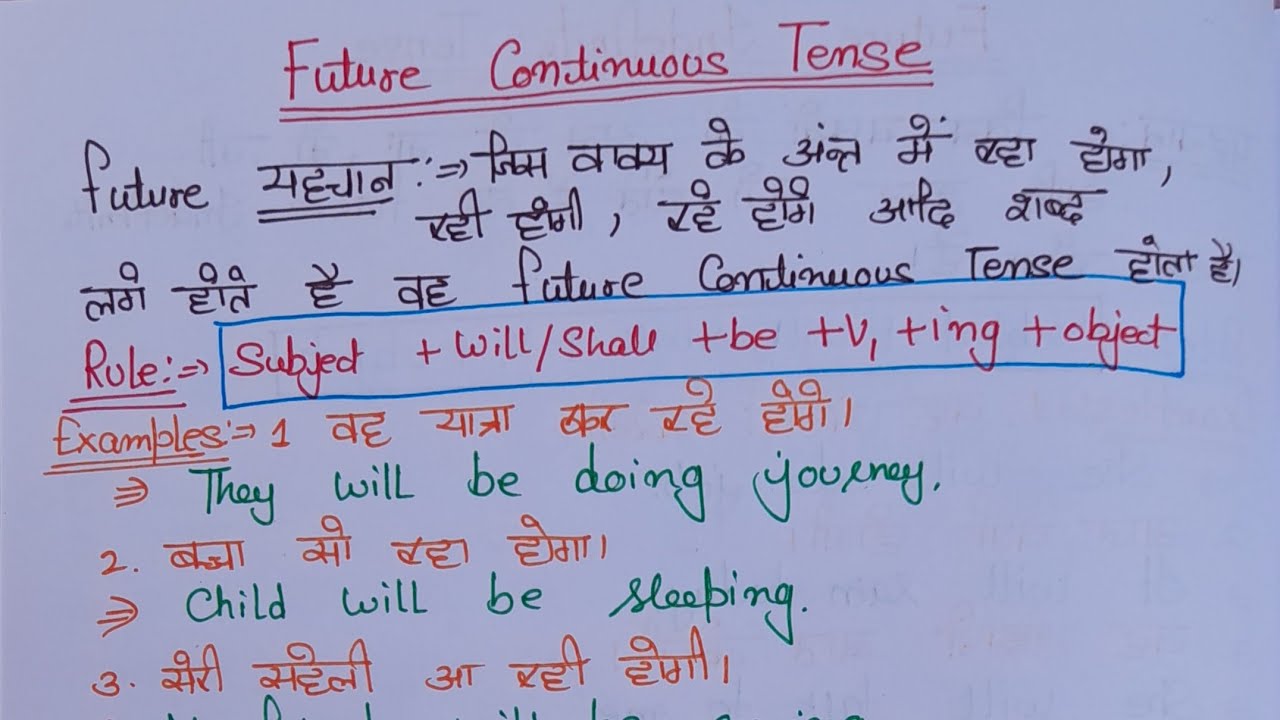 Future Continuous Tense
future पहचान :⇒ जिस वाक्य के अंन्त में रहा होगा,
रही होगी, रहे होगे आदि शब्द
लगे होते है वह future Continuous Tense होता है।
Rule:⇒ Subject + will/Shall +be +V, +ing +object
Examples:⇒ 1 वह यात्रा कर रहे होगे।
⇒ They will be doing journey.
2. बच्चा सो रहा होगा।
⇒ Child will be sleeping.
3. मेरी सहेली आ रही होगी।
will be